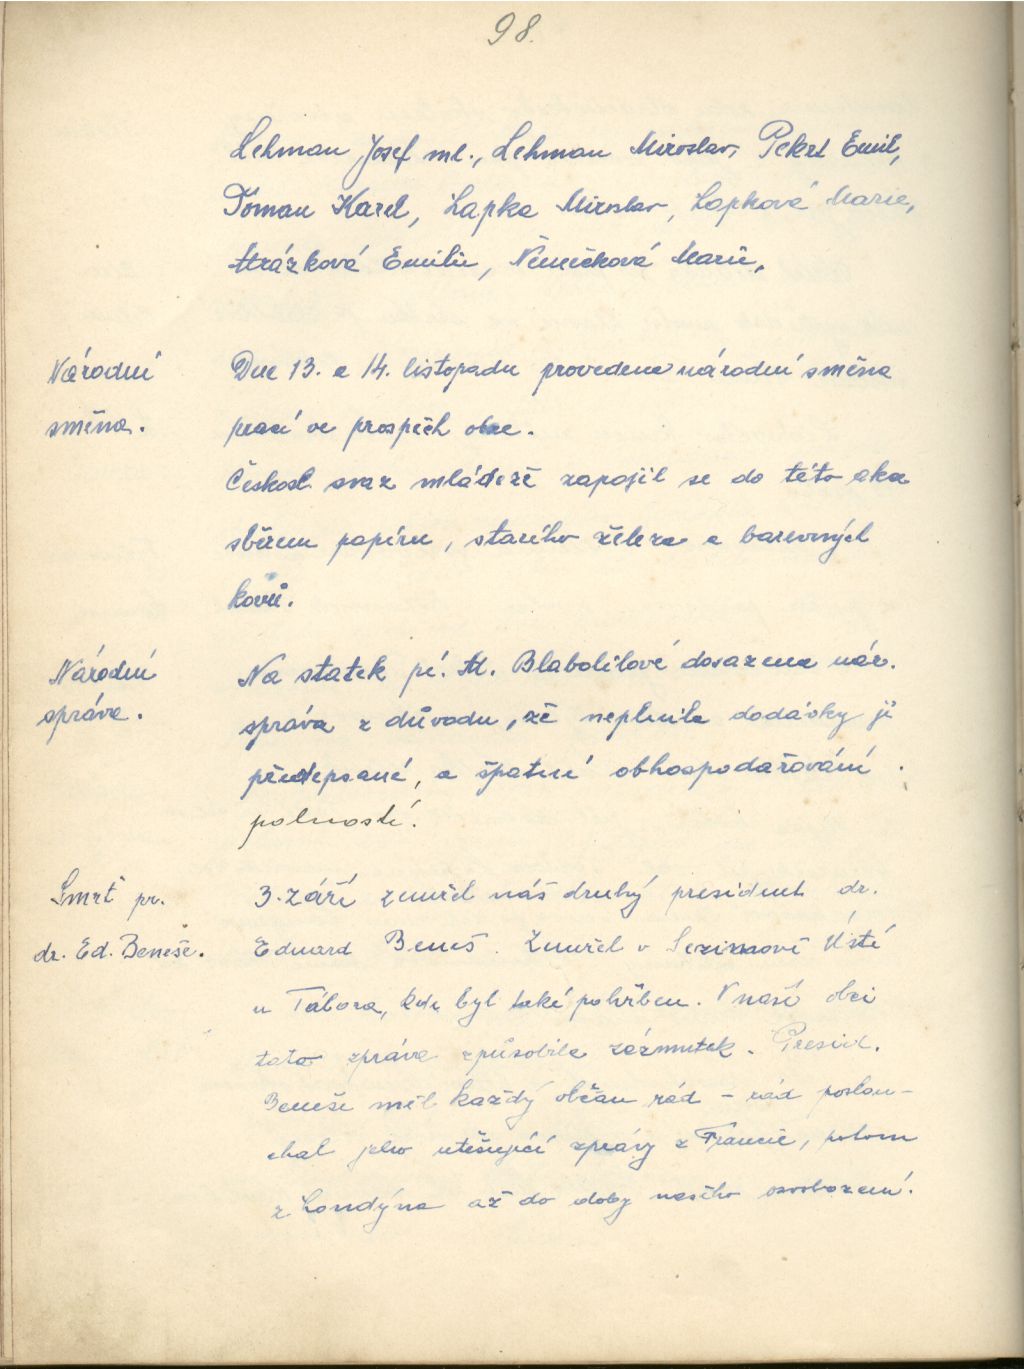 98.
Lehman Josef ml., Lehman Miroslav, Pekrt Emil,
Toman Karel, Lapka Miroslav, Lapková Marie,
Mrázková Emilie, Němečková Marie,
Národní
směna.
Dne 13. a 14. listopadu provedena národní směna
prací ve prospěch obce.
Českosl. svaz mládeže zapojil se do této akce
sběrem papíru, starého železa a barevných
kovů.
Národní
správa.
Na statek pí. M. Blabolilové dosazena nár.
správa z důvodu, že neplnila dodávky jí
předepsané, a špatné obhospodařování
polností.
Smrt pr.
dr. Ed. Beneše.
3. září zemřel náš druhý president dr.
Eduard Beneš. Zemřel v Sezimově Ústí
u Tábora, kde byl také pohřben. V naší obci
tato zpráva způsobila zármutek. Presid.
Beneše měl každý občan rád – rád poslou-
chal jeho utěšující zprávy z Francie, potom
z Londýna až do doby našeho osvobození.